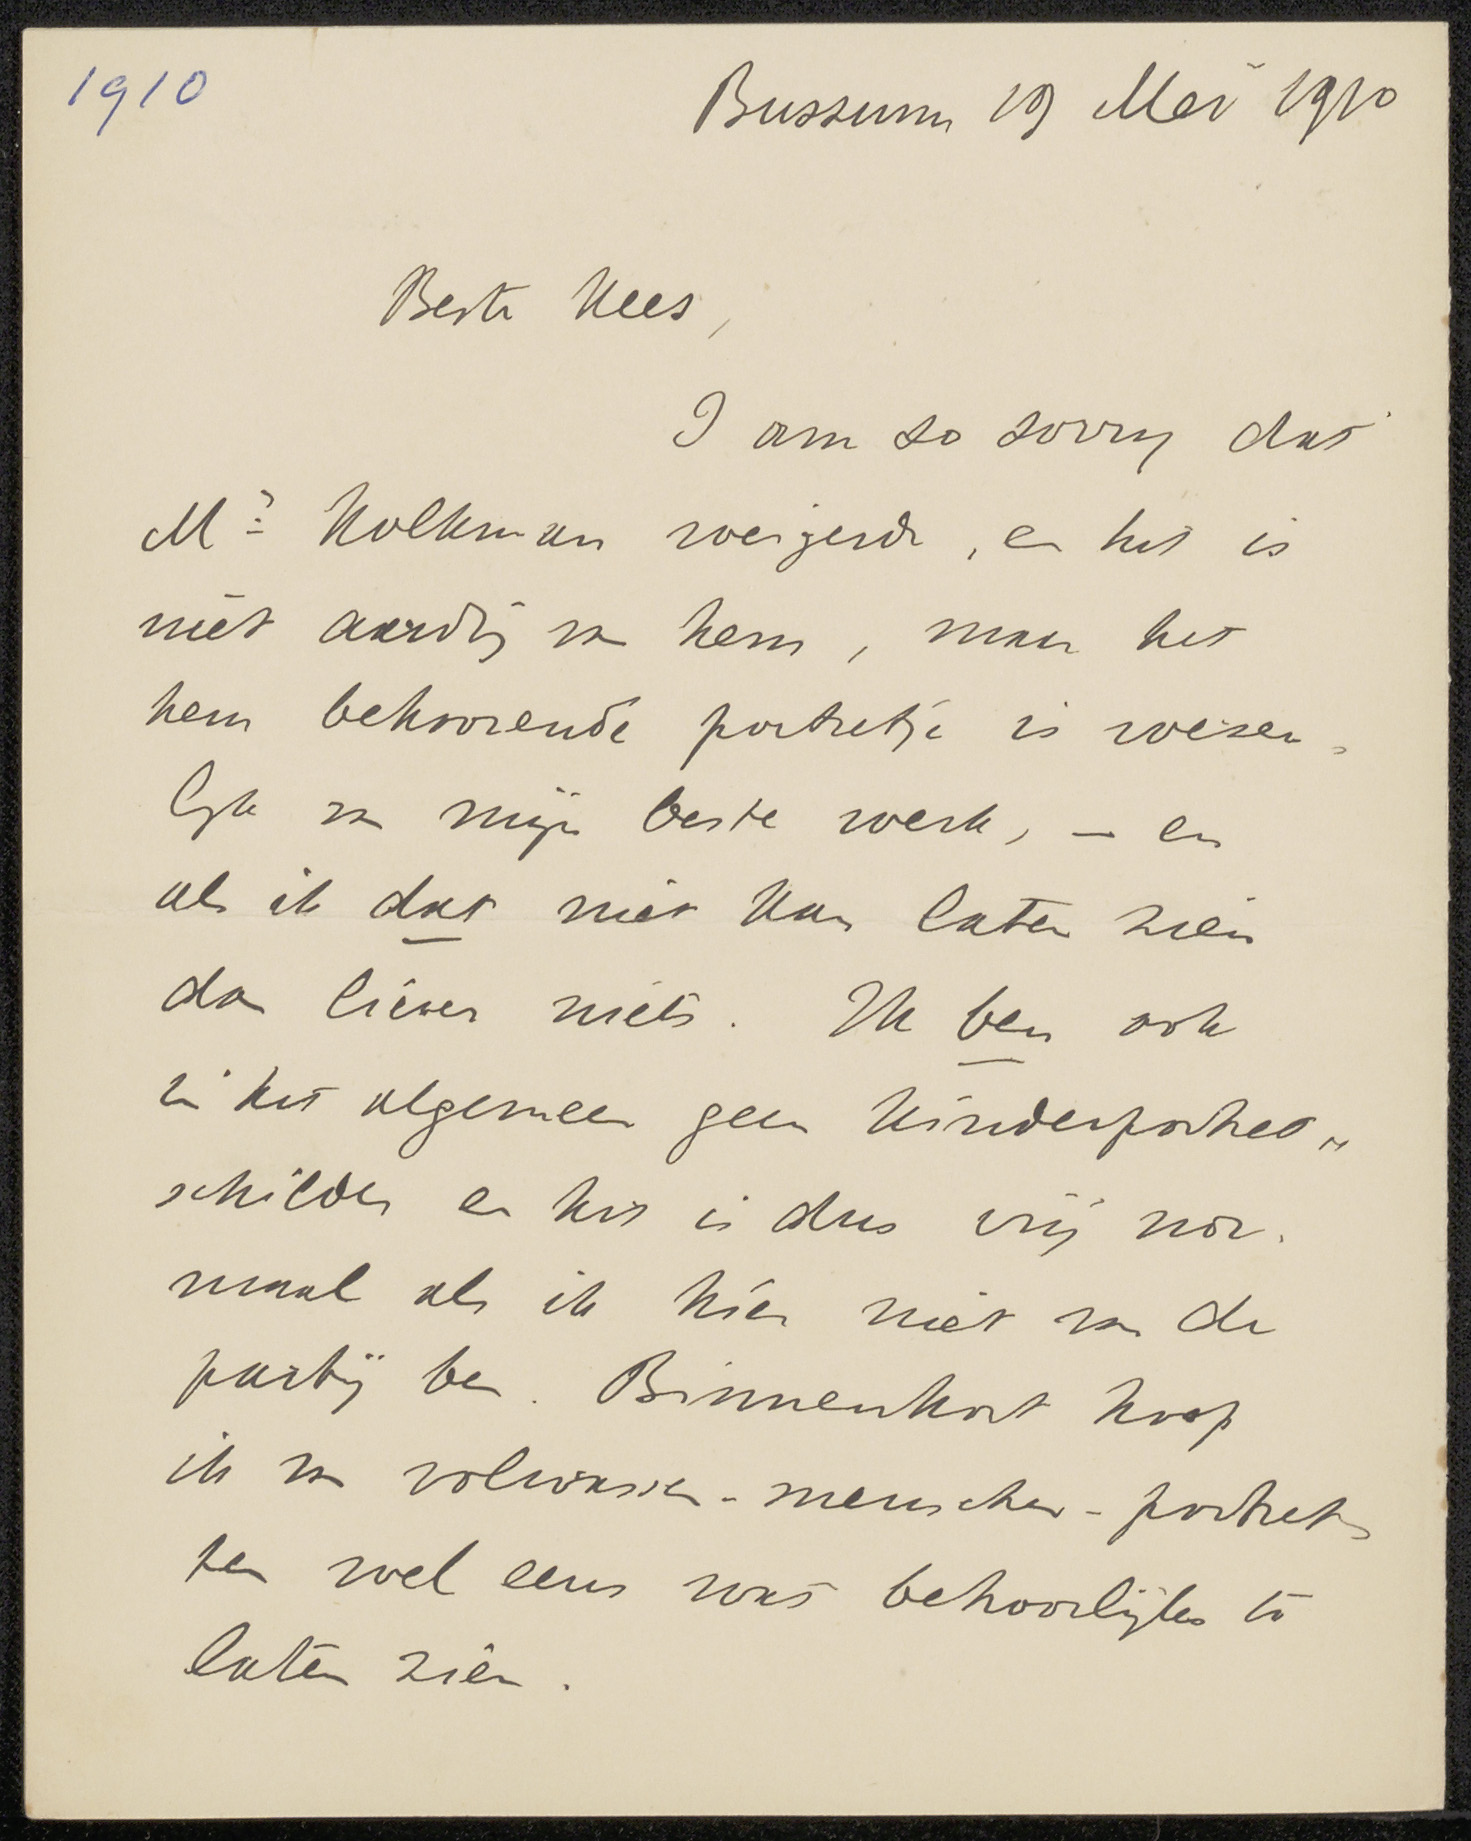 1910
Bussum 19 Mei 1910
Beste Kees,
I am so sorry dat
Mr. Kolkman weigerde, en het is
niet aardig van hem, maar het
hem behoorende portretje is wezen-
lijk van mijn beste werk, — en
als ik dat niet kan laten zien
dan liever niets. Ik ben ook
in het algemeen geen kinderportret-
schilder en het is dus vrij nor-
maal als ik hier niet van de
partij ben. Binnenkort hoop
ik van volwassen-menschen-portret-
ten wel eens wat behoorlijks te
laten zien.